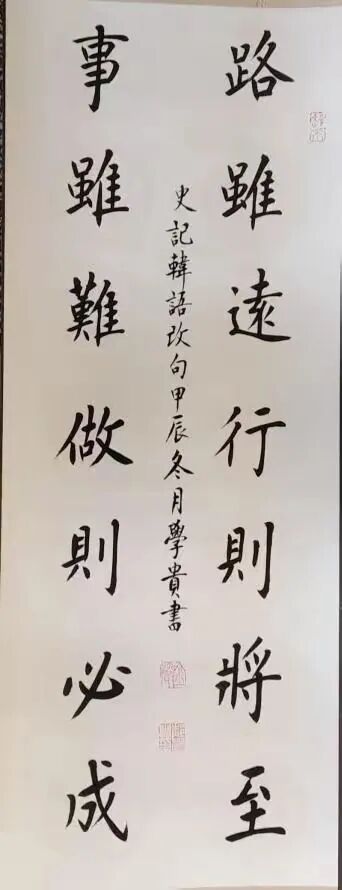 路雖遠行則將至
事雖難做則必成
史記韓語改句甲辰冬月學貴書